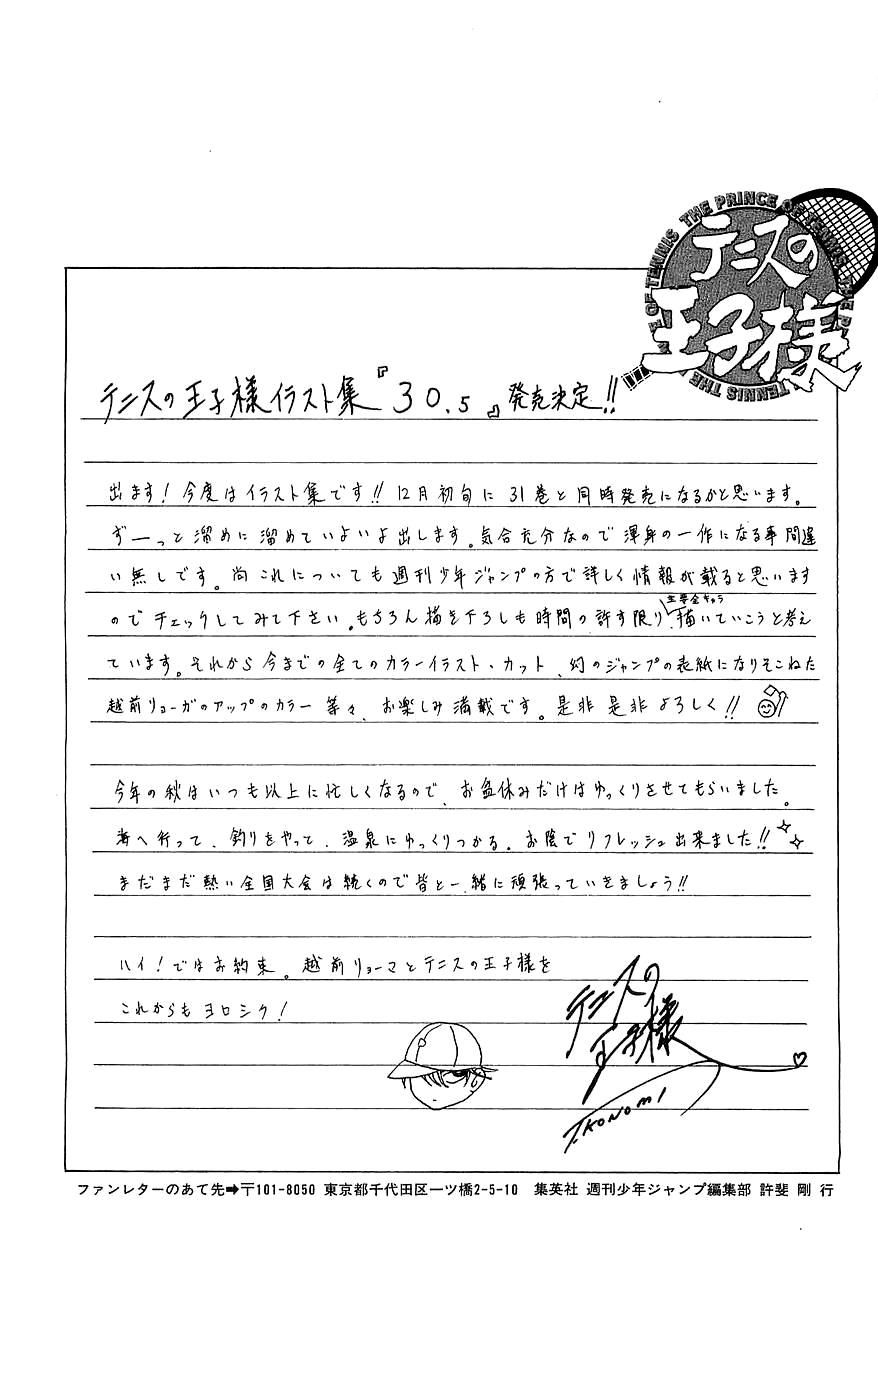 THE PRINCE OF TENNIS THE PRINCE OF TENNIS THE
テニスの
王子様
テニスの王子様イラスト集『30.5』発売決定!!
出ます！今度はイラスト集です!! 12月初旬に31巻と同時発売になるかと思います。
ずーっと溜めに溜めていよいよ出します。気合充分なので渾身の一作になる事間違
い無しです。尚これについても週刊少年ジャンプの方で詳しく情報が載ると思います
主要全キャラ
のでチェックしてみて下さい。もちろん描き下ろしも時間の許す限り、描いていこうと考え
ています。それから今までの全てのカラーイラスト・カット、幻のジャンプの表紙になりそこねた
越前リョーガのアップのカラー等々、お楽しみ満載です。是非是非よろしく!!
今年の秋はいつも以上に忙しくなるので、お盆休みだけはゆっくりさせてもらいました。
海へ行って、釣りをやって、温泉にゆっくりつかる。お陰でリフレッシュ出来ました!!
まだまだ熱い全国大会は続くので皆と一緒に頑張っていきましょう!!
ハイ！ではお約束。越前リョーマとテニスの王子様を
これからもヨロシク！
テニスの
王子様
T.KONOMI
ファンレターのあて先➡〒101-8050 東京都千代田区一ツ橋2-5-10 集英社 週刊少年ジャンプ編集部 許斐 剛 行